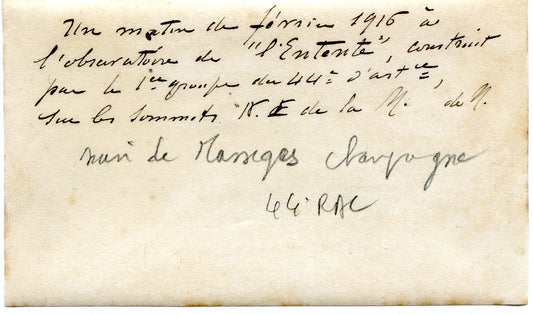 Un matin de février 1916 à
l'observatoire de "l'Entente", construit
par le 1er groupe du 44e d'artie,
sur les sommets N.E de la M. de M.
main de Massiges Champagne
44e RAC